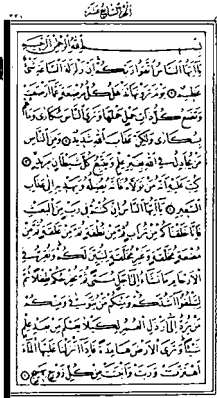 الجزء السابع عشر
بسم الله الرحمن الرحيم
يا أيها الناس اتقوا ربكم إن زلزلة الساعة شيء
عظيم يوم ترونها تذهل كل مرضعة عما أرضعت
وتضع كل ذات حمل حملها وترى الناس سكارى وما هم
بسكارى ولكن عذاب الله شديد ومن الناس
من يجادل في الله بغير علم ويتبع كل شيطان مريد
كتب عليه أنه من تولاه فأنه يضله ويهديه إلى عذاب
السعير يا أيها الناس إن كنتم في ريب من البعث
فإنا خلقناكم من تراب ثم من نطفة ثم من علقة ثم من
مضغة مخلقة وغير مخلقة لنبين لكم ونقر في
الأرحام ما نشاء إلى أجل مسمى ثم نخرجكم طفلا ثم
لتبلغوا أشدكم ومنكم من يتوفى ومنكم
من يرد إلى أرذل العمر لكيلا يعلم من بعد علم
شيئا وترى الأرض هامدة فإذا أنزلنا عليها الماء
اهتزت وربت وأنبتت من كل زوج بهيج